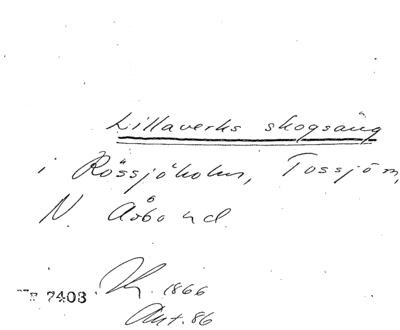 Lillaverks skogsäng
i Rössjöholm, Tossjöm,
N. Åsbo hd
1866
7408
Ant. 86